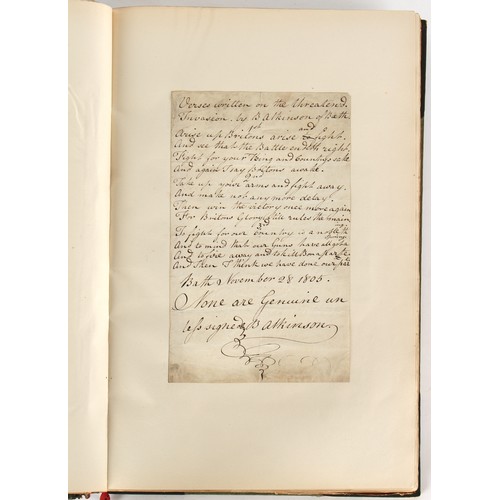 Verses written on the threatend
Invasion. by B Atkinson of Bath.
Arise up Britons arise and fight.
And see that the Battle endeth right
Fight for your King and Countrys sake
And again I say Britons awake.
Take up your arms and fight away.
And make not any more delay.
Then win the victory once more again
For Britons Glory still rules the main
To fight for our Country is a
And to mind that our Guns have
And to fire away and to kill Bonaparte.
And Then I think we have done our part
Bath November 28 1805.
None are Genuine un
less signed B Atkinson.